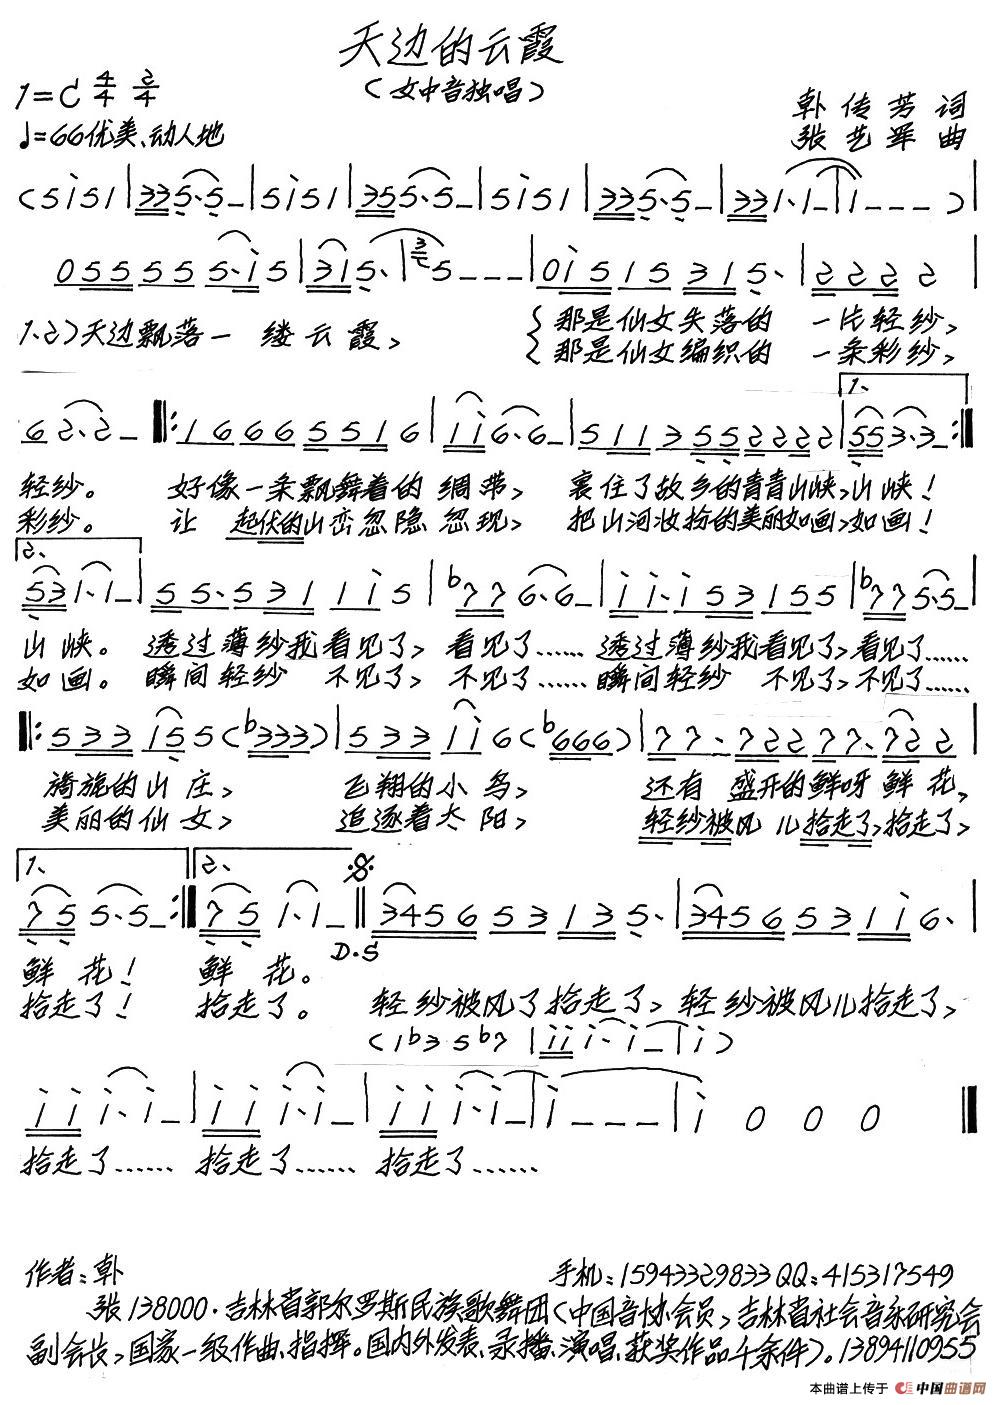 天边的云霞
(女中音独唱)
1=C 4/4 2/4
♩=66优美、动人地
韩传芳 词
张艺军 曲
(5i51|335·5-|5i51|3555·5-|5i51|335·5-|331·1-|1---)|
055555·i5|315·|5---|0i515315·|2222|
1.2)天边飘落一缕云霞,
{那是仙女失落的 一片轻纱,
{那是仙女编织的 一条彩纱,
1.
62·2-‖:16665516|ii6·6-|5113552222|553·3-:‖
轻纱。 好像一条飘舞着的绸带, 裹住了故乡的青青山峡,山峡!
彩纱。 让起伏的山峦忽隐忽现, 把山河妆扮的美丽如画,如画!
2.
531·1-|55·5311i5|♭776·6-|ii·i53155|♭775·5-|
山峡。 透过薄纱我看见了,看见了…… 透过薄纱我看见了,看见了……
如画。 瞬间轻纱 不见了,不见了…… 瞬间轻纱 不见了,不见了……
‖:533155(♭333)|533ii6(♭666)|77·72277·722|
旖旎的山庄, 飞翔的小鸟, 还有盛开的鲜呀鲜花,
美丽的仙女, 追逐着太阳, 轻纱被风儿拾走了,拾走了,
1. 2.
755·5-:‖751·1-‖345653135·|3456531i6·|
D·S
鲜花! 鲜花。
拾走了! 拾走了。 轻纱被风了拾走了,轻纱被风儿拾走了,
(1♭35♭7|iii·i-|i)
iii·i-|iii·i-|iii·i-|i---|i000‖
拾走了…… 拾走了…… 拾走了……
作者:韩 手机:15943329833QQ:415317549
张138000·吉林省郭尔罗斯民族歌舞团(中国音协会员,吉林省社会音乐研究会
副会长,国家一级作曲、指挥。国内外发表、录播、演唱、获奖作品千余件)。13894110955
本曲谱上传于 中国曲谱网